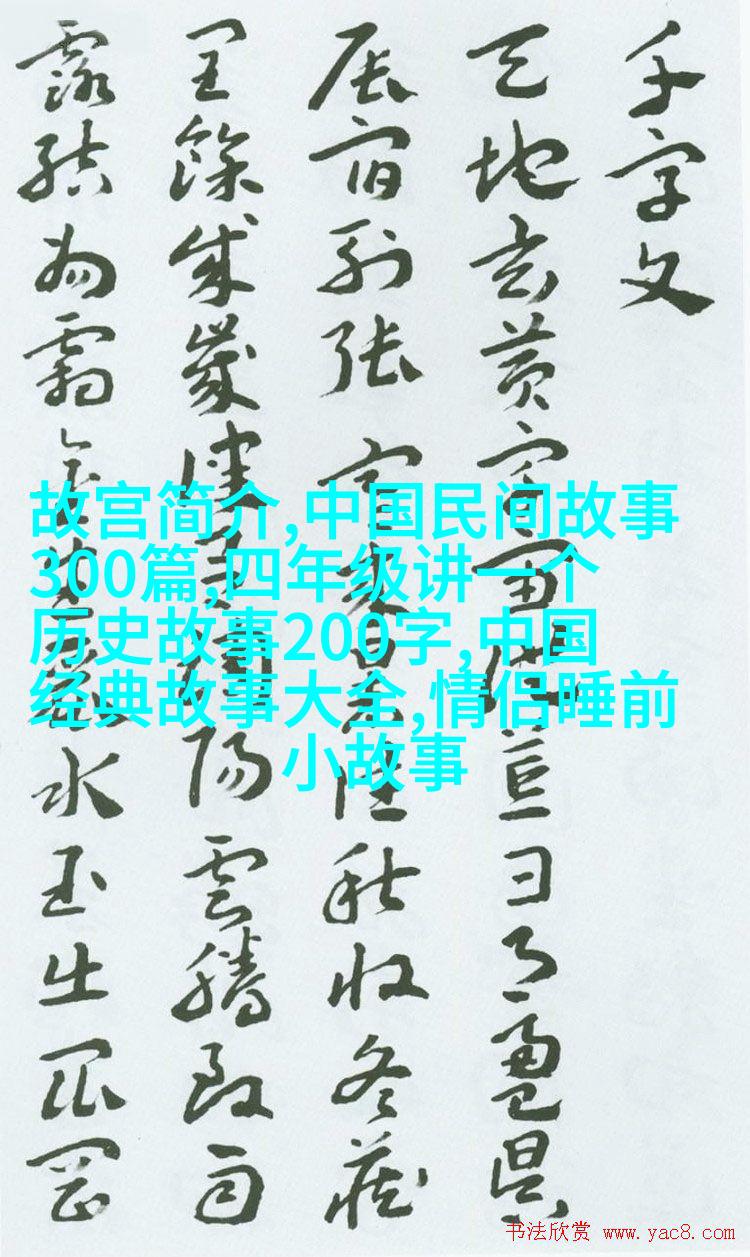 千字文
天地玄黃宇宙洪荒日月盈昃
辰宿列張寒來暑往秋收冬藏
閏餘成歲律調陽雲騰致雨
露結為霜金生麗水玉出崑岡
故宫简介,中国民间故事
300篇,四年级讲一个
历史故事200字,中国
经典故事大全,情侣睡前
小故事
书法欣赏 www.yac8.com